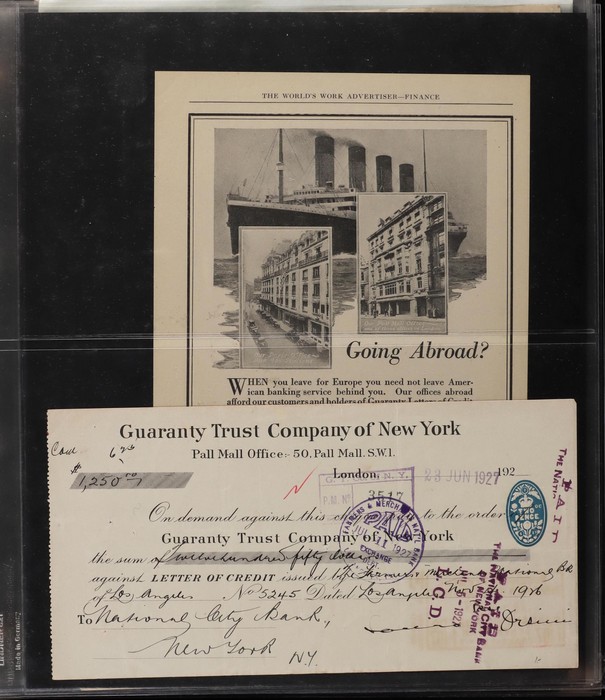 THE WORLD'S WORK ADVERTISER—FINANCE
Going Abroad?
WHEN you leave for Europe you need not leave Amer-
ican banking service behind you. Our offices abroad
afford our customers and holders of Guaranty Letters of Credit
Guaranty Trust Company of New York
Pall Mall Office:- 50, Pall Mall. S.W.1.
Com
6
$ 1,250
London, 23 JUN 1927 192
G. T. CO. N.Y.
P.M. No 3517
On demand against this to the order
Guaranty Trust Company of New York
the sum of Twelve hundred fifty
against LETTER OF CREDIT issued by The Farmers Merchants National Bk
of Los Angeles No 5245 Dated Los Angeles Nov 1926
To National City Bank,
New York
N.Y.
FARMERS & MERCHANTS NAT'L BANK
EXCHANGE
TWO
PENCE
THE NATI
THE NATIONAL CITY BANK
OF NEW YORK
L. G. D.
Made in Germany